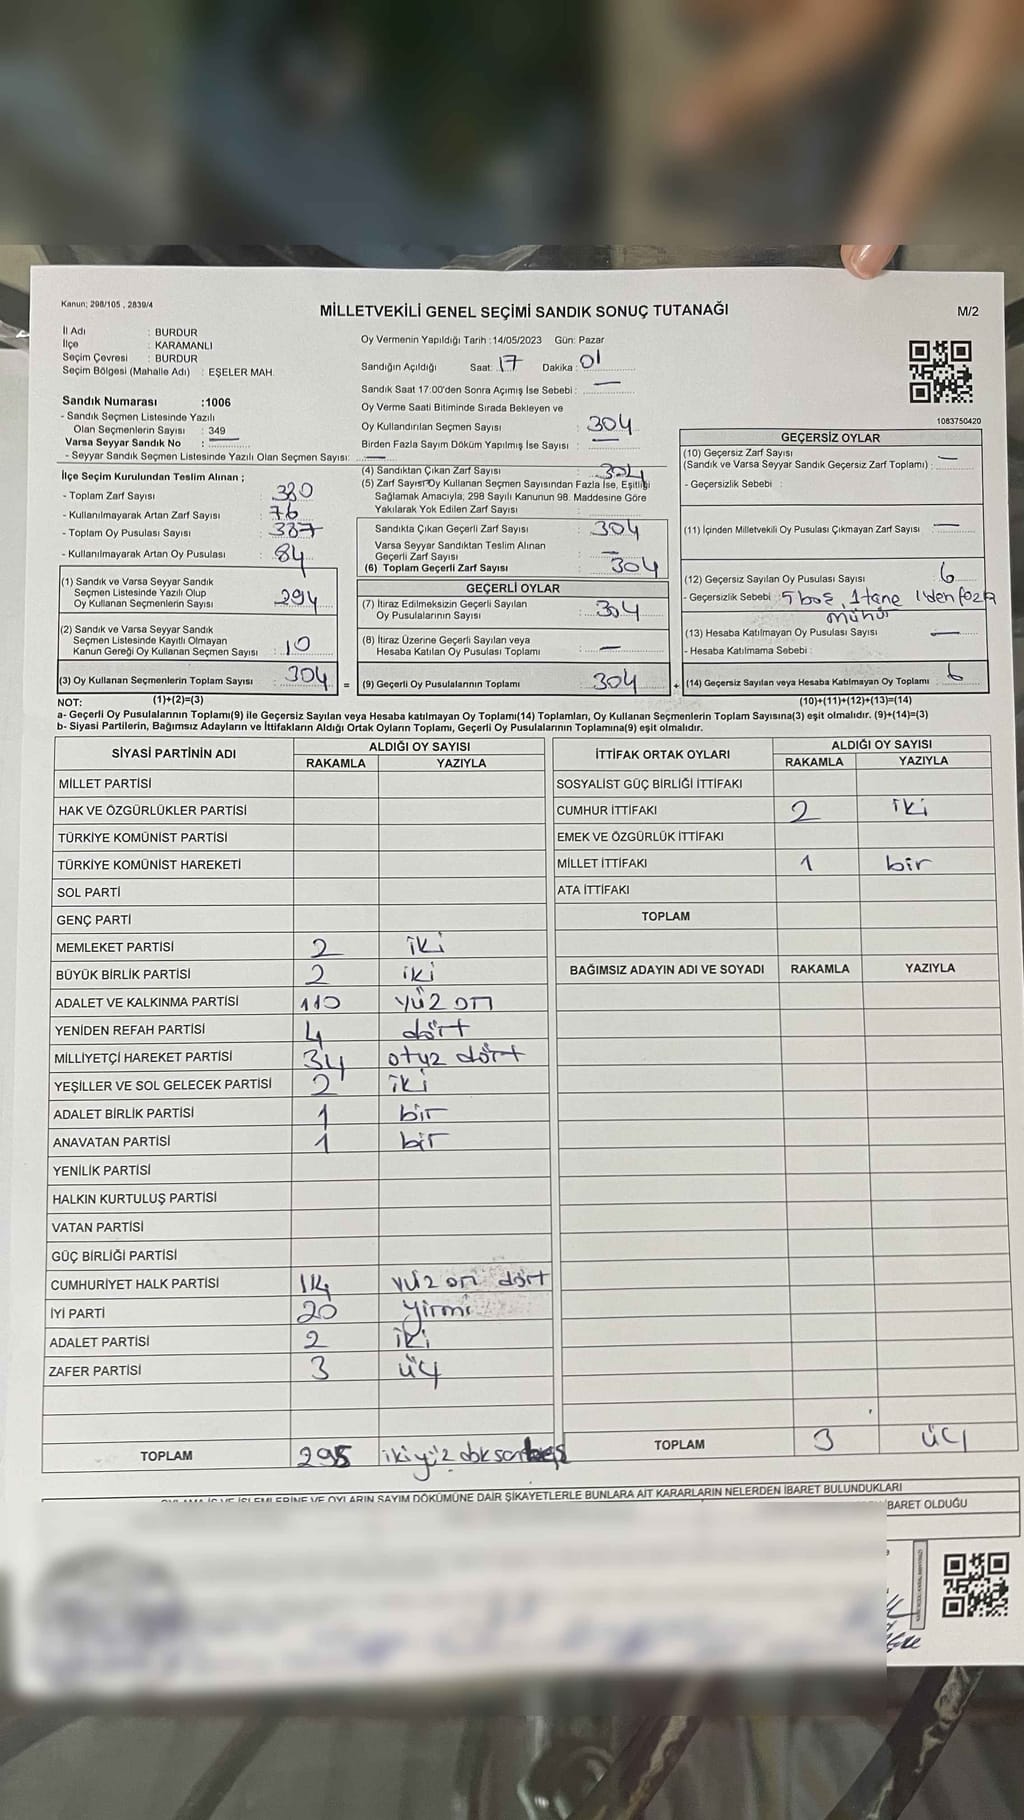 Kanun; 298/105 , 2839/4
MİLLETVEKİLİ GENEL SEÇİMİ SANDIK SONUÇ TUTANAĞI
M/2
İl Adı : BURDUR
İlçe : KARAMANLI
Seçim Çevresi : BURDUR
Seçim Bölgesi (Mahalle Adı) : EŞELER MAH.
Oy Vermenin Yapıldığı Tarih :14/05/2023 Gün: Pazar
Sandığın Açıldığı Saat: 17 Dakika: 01
Sandık Saat 17:00'den Sonra Açımış İse Sebebi : —
Oy Verme Saati Bitiminde Sırada Bekleyen ve
Oy Kullandırılan Seçmen Sayısı : 304
Birden Fazla Sayım Döküm Yapılmış İse Sayısı : —
1083750420
Sandık Numarası :1006
- Sandık Seçmen Listesinde Yazılı
Olan Seçmenlerin Sayısı : 349
Varsa Seyyar Sandık No : —
- Seyyar Sandık Seçmen Listesinde Yazılı Olan Seçmen Sayısı: —
İlçe Seçim Kurulundan Teslim Alınan ;
- Toplam Zarf Sayısı : 380
- Kullanılmayarak Artan Zarf Sayısı : 76
- Toplam Oy Pusulası Sayısı : 387
- Kullanılmayarak Artan Oy Pusulası : 84
(1) Sandık ve Varsa Seyyar Sandık
Seçmen Listesinde Yazılı Olup
Oy Kullanan Seçmenlerin Sayısı : 294
(2) Sandık ve Varsa Seyyar Sandık
Seçmen Listesinde Kayıtlı Olmayan
Kanun Gereği Oy Kullanan Seçmen Sayısı : 10
(3) Oy Kullanan Seçmenlerin Toplam Sayısı : 304 =
(1)+(2)=(3)
(4) Sandıktan Çıkan Zarf Sayısı : 304
(5) Zarf Sayısı Oy Kullanan Seçmen Sayısından Fazla İse, Eşitliği
Sağlamak Amacıyla; 298 Sayılı Kanunun 98. Maddesine Göre
Yakılarak Yok Edilen Zarf Sayısı :
Sandıkta Çıkan Geçerli Zarf Sayısı : 304
Varsa Seyyar Sandıktan Teslim Alınan
Geçerli Zarf Sayısı : —
(6) Toplam Geçerli Zarf Sayısı : 304
GEÇERLİ OYLAR
(7) İtiraz Edilmeksizin Geçerli Sayılan
Oy Pusulalarının Sayısı : 304
(8) İtiraz Üzerine Geçerli Sayılan veya
Hesaba Katılan Oy Pusulası Toplamı : —
(9) Geçerli Oy Pusulalarının Toplamı : 304 +
GEÇERSİZ OYLAR
(10) Geçersiz Zarf Sayısı
(Sandık ve Varsa Seyyar Sandık Geçersiz Zarf Toplamı) : —
- Geçersizlik Sebebi :
(11) İçinden Milletvekili Oy Pusulası Çıkmayan Zarf Sayısı : —
(12) Geçersiz Sayılan Oy Pusulası Sayısı : 6
- Geçersizlik Sebebi : 5 boş, 1 tane 1'den fazla
mühür
(13) Hesaba Katılmayan Oy Pusulası Sayısı : —
- Hesaba Katılmama Sebebi :
(14) Geçersiz Sayılan veya Hesaba Katılmayan Oy Toplamı : 6
(10)+(11)+(12)+(13)=(14)
NOT:
a- Geçerli Oy Pusulalarının Toplamı(9) ile Geçersiz Sayılan veya Hesaba katılmayan Oy Toplamı(14) Toplamları, Oy Kullanan Seçmenlerin Toplam Sayısına(3) eşit olmalıdır. (9)+(14)=(3)
b- Siyasi Partilerin, Bağımsız Adayların ve İttifakların Aldığı Oyların Toplamı, Geçerli Oy Pusulalarının Toplamına(9) eşit olmalıdır.
SİYASİ PARTİNİN ADI ALDIĞI OY SAYISI
RAKAMLA YAZIYLA
MİLLET PARTİSİ
HAK VE ÖZGÜRLÜKLER PARTİSİ
TÜRKİYE KOMÜNİST PARTİSİ
TÜRKİYE KOMÜNİST HAREKETİ
SOL PARTİ
GENÇ PARTİ
MEMLEKET PARTİSİ 2 iki
BÜYÜK BİRLİK PARTİSİ 2 iki
ADALET VE KALKINMA PARTİSİ 110 yüz on
YENİDEN REFAH PARTİSİ 4 dört
MİLLİYETÇİ HAREKET PARTİSİ 34 otuz dört
YEŞİLLER VE SOL GELECEK PARTİSİ 2 iki
ADALET BİRLİK PARTİSİ 1 bir
ANAVATAN PARTİSİ 1 bir
YENİLİK PARTİSİ
HALKIN KURTULUŞ PARTİSİ
VATAN PARTİSİ
GÜÇ BİRLİĞİ PARTİSİ
CUMHURİYET HALK PARTİSİ 114 yüz on dört
İYİ PARTİ 20 yirmi
ADALET PARTİSİ 2 iki
ZAFER PARTİSİ 3 üç
TOPLAM 295 ikiyüz doksanbeş
İTTİFAK ORTAK OYLARI ALDIĞI OY SAYISI
RAKAMLA YAZIYLA
SOSYALİST GÜÇ BİRLİĞİ İTTİFAKI
CUMHUR İTTİFAKI 2 iki
EMEK VE ÖZGÜRLÜK İTTİFAKI
MİLLET İTTİFAKI 1 bir
ATA İTTİFAKI
TOPLAM
BAĞIMSIZ ADAYIN ADI VE SOYADI RAKAMLA YAZIYLA
TOPLAM 3 üç
OYLAMA İŞ VE İŞLEMLERİNE VE OYLARIN SAYIM DÖKÜMÜNE DAİR ŞİKAYETLERLE BUNLARA AİT KARARLARIN NELERDEN İBARET BULUNDUKLARI
İBARET OLDUĞU